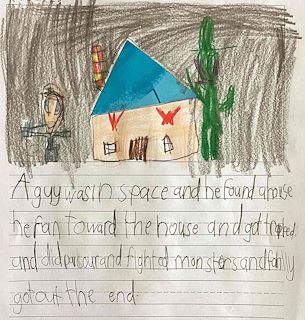 A guy was in space and he found a house
he ran toward the house and got trapped
and did parkour and fighted monsters and finally
got out the end.